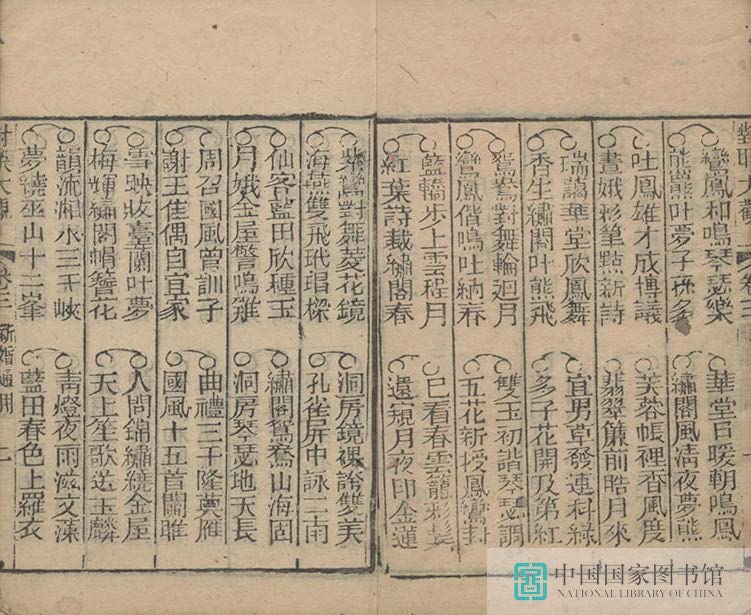 鸞鳳和鳴琴瑟樂
熊羆叶夢子孫多
吐鳳雄才成博議
晝娥彩筆點新詩
瑞藹華堂欣鳳舞
香生繡閣叶熊飛
鴛鴦對舞輪迴月
鸞鳳偕鳴吐納春
藍轎步上雲程月
紅葉詩裁繡閣春
華堂日暖朝鳴鳳
繡閣風清夜夢熊
芙蓉帳裡香風度
翡翠簾前皓月來
宜男草發連科綠
多子花開及第紅
雙玉初諧琴瑟調
五花新授鳳鸞封
已看春雲籠彩髩
還窺月夜印金蓮
鸞對舞菱花鏡
海燕雙飛玳瑁樑
仙客藍田欣種玉
月娥金屋警鳴雞
周召國風曾訓子
謝王佳偶自宜家
雪映妝臺蘭叶夢
梅輝繡閣帽簪花
韻流湘水三千峽
夢繞巫山十二峯
洞房鏡裸諧雙美
孔雀屏中詠二南
繡閣鴛鴦山海固
洞房琴瑟地天長
曲禮三千隆奠雁
國風十五首關雎
人間錦繡纏金屋
天上笙歌送玉麟
青燈夜雨滋文藻
藍田春色上羅衣
大觀
卷三
新婚通用
一
中国国家图书馆
NATIONAL LIBRARY OF CHINA